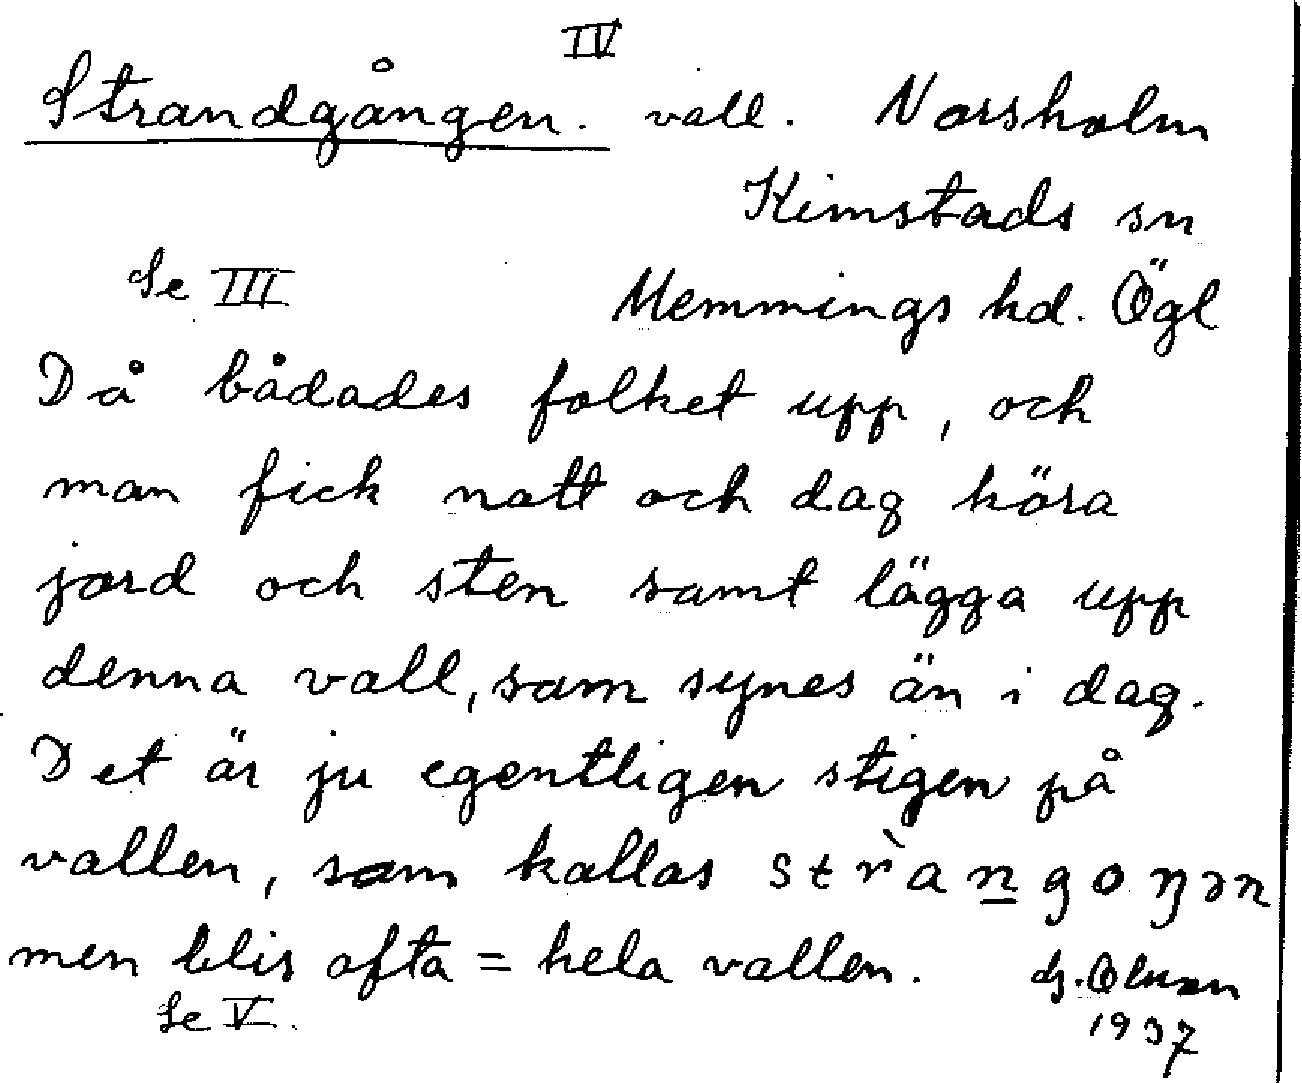 IV
Strandgången. vall. Norsholm
Kimstads sn
Se III Memmings hd. Ögl
Då bådades folket upp, och
man fick natt och dag köra
jord och sten samt lägga upp
denna vall, som synes än i dag.
Det är ju egentligen stigen på
vallen, som kallas str̀angoŋən
men blir ofta = hela vallen.
Se V. 1937